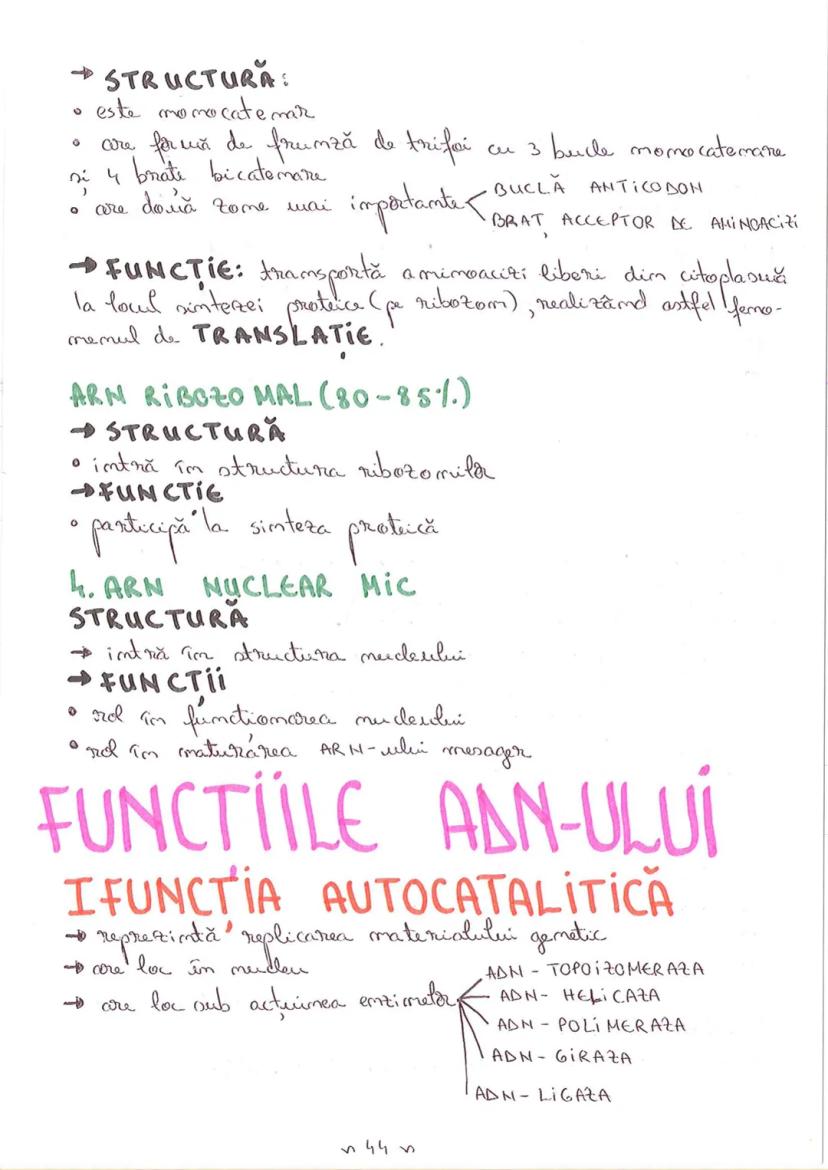 → STRUCTURĂ:
• este monocatenar
• are formă de frunză de trifoi cu 3 bucle monocatenare
și 4 brațe bicatenare
• are două zone mai importante
BUCLĂ ANTICODON
BRAȚ ACCEPTOR DE AMINOACIZI
→ FUNCȚIE: transportă aminoacizi liberi din citoplasmă
la locul sintezei proteice (pe ribozom), realizând astfel feno-
menul de TRANSLAȚIE.
ARN RIBOZOMAL (80-85%)
→ STRUCTURĂ
• intră în structura ribozomilor
→ FUNCȚIE
• participă la sinteza proteică
4. ARN NUCLEAR MIC
STRUCTURĂ
→ intră în structura nucleului
→ FUNCȚII
• rol în funcționarea nucleului
• rol în maturarea ARN-ului mesager
FUNCȚIILE ADN-ULUI
I FUNCȚIA AUTOCATALITICĂ
→ reprezintă replicarea materialului genetic
→ are loc în nucleu
→ are loc sub acțiunea enzimelor
ADN - TOPOIZOMERAZA
ADN - HELICAZA
ADN - POLIMERAZA
ADN - GIRAZA
ADN - LIGAZA
~ 44 ~